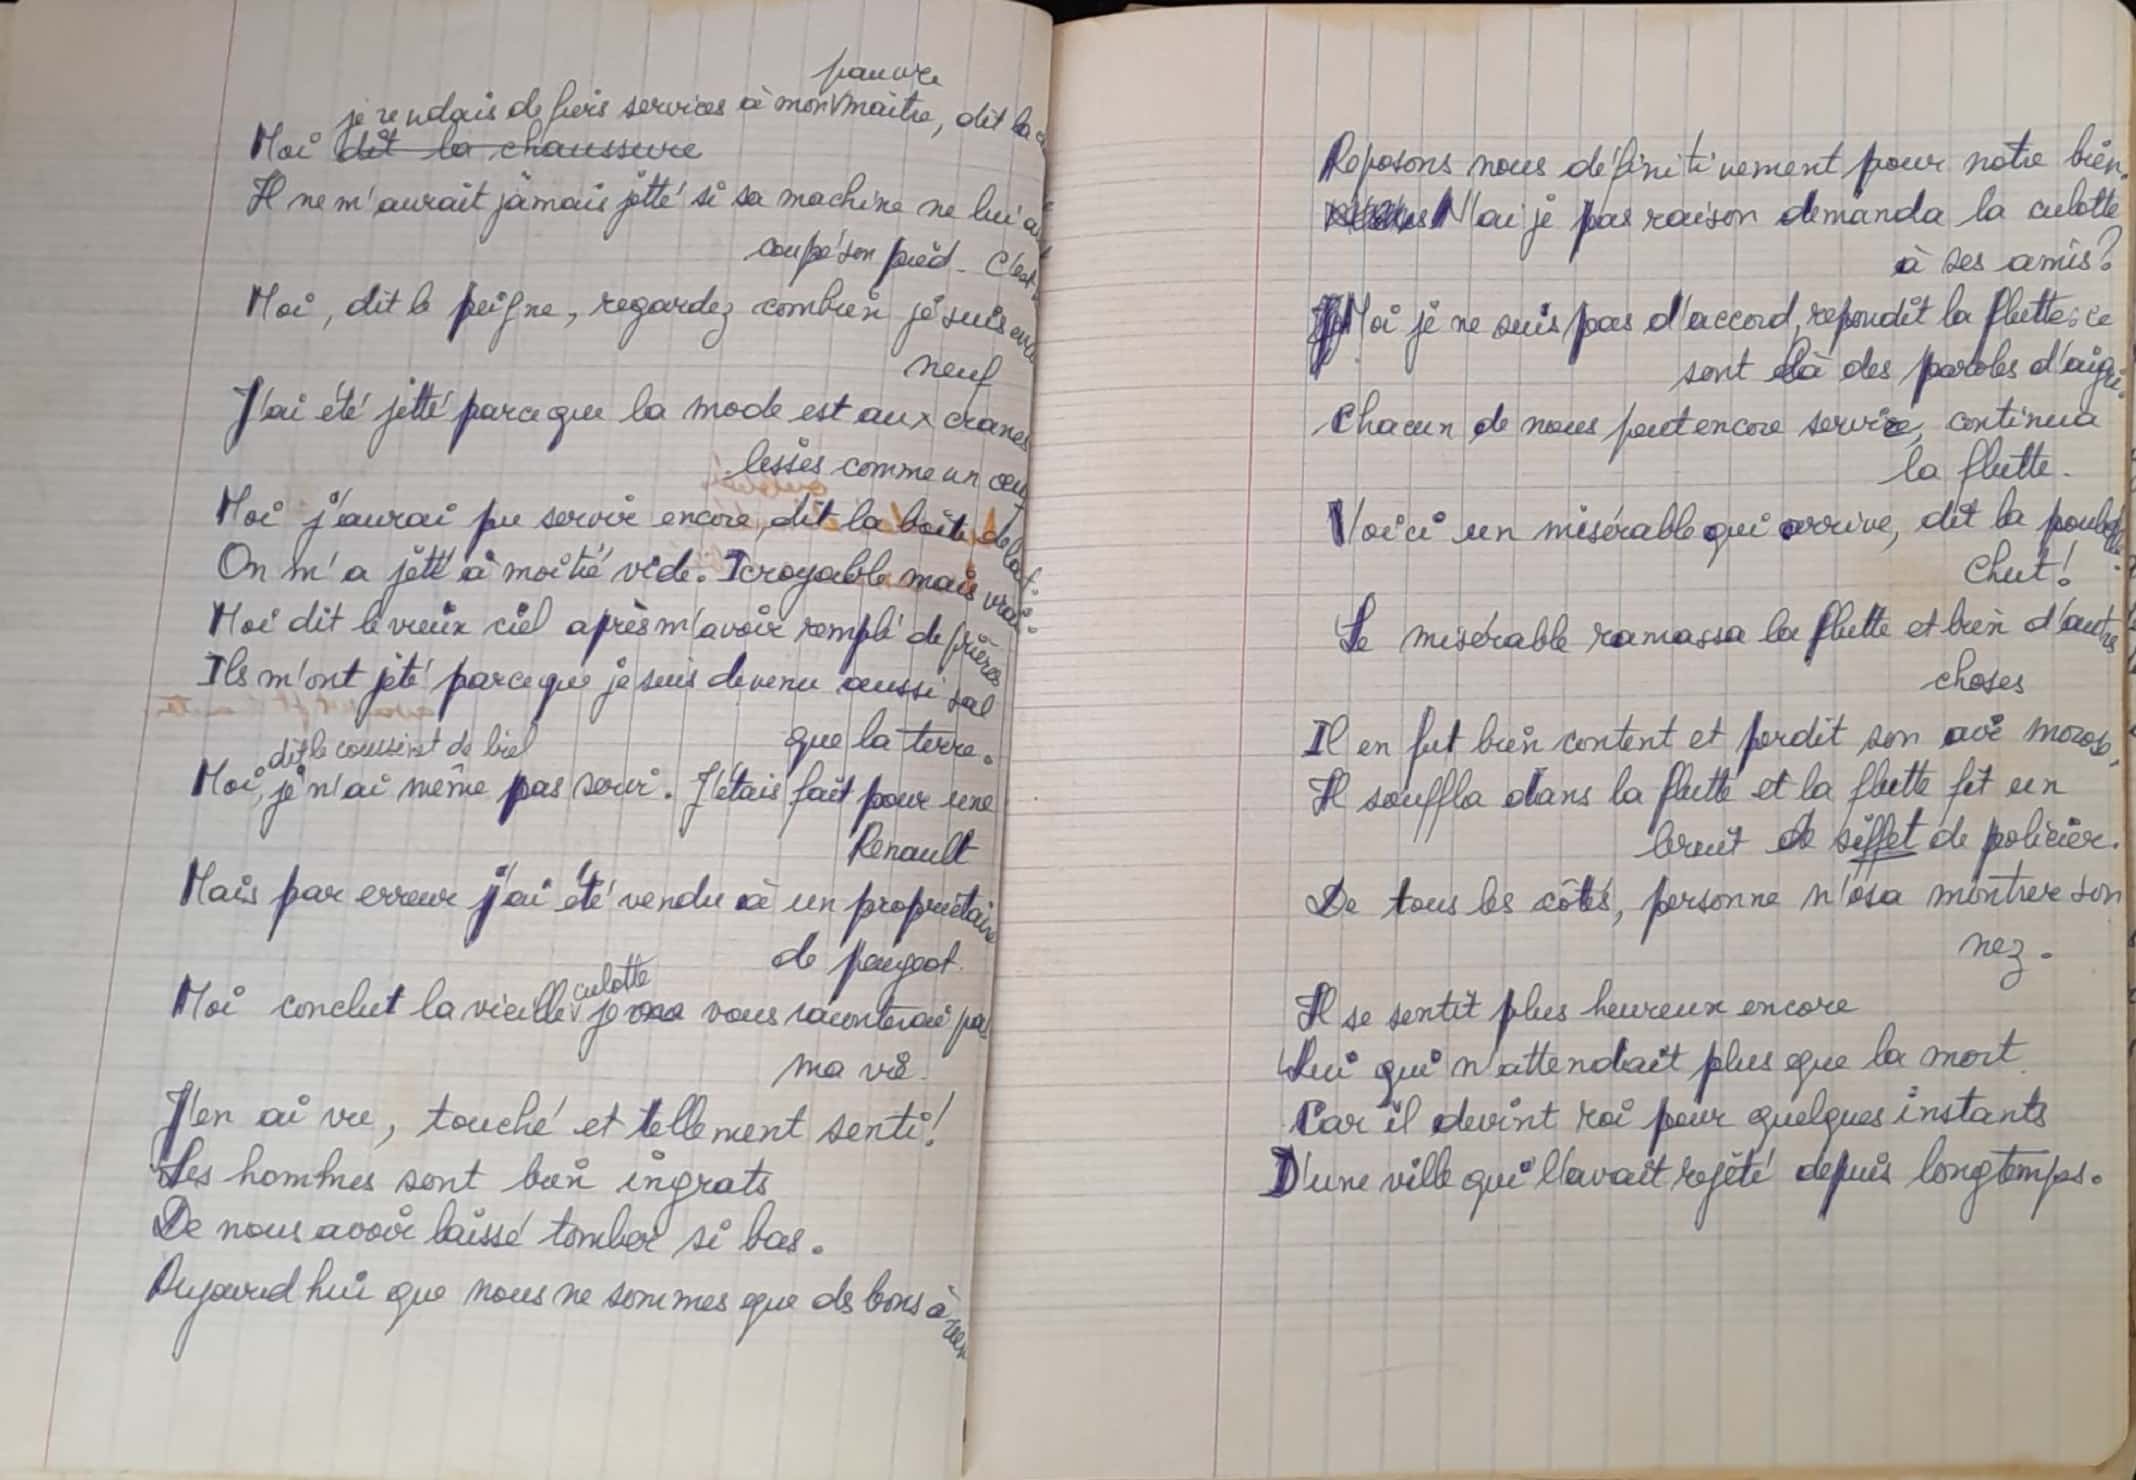 pauvre
je rendais de fiers services à mon maitre, dit la
Moi dit la chaussure
Il ne m'aurait jamais jetté si sa machine ne lui
coupé son pied. C'est
Moi, dit le peigne, regardez combien je suis
neuf
J'ai été jetté parceque la mode est aux cranes
lisses comme un œuf
Moi j'aurai pu servir encore, dit la boîte de lait.
On m'a jetté à moitié vide. Icroyable mais vrai.
Moi dit le vieux ciel après m'avoir rempli de prières
Ils m'ont jeté parceque je suis devenu aussi sal
que la terre.
dit le coussinet de biel
Moi, je n'ai même pas servi. J'étais fait pour une
Renault
Mais par erreur j'ai été vendu à un propriétaire
de peugeot.
culotte
Moi conclut la vieille je vous raconterai pas
ma vie.
J'en ai vu, touché et tellement senti!
Les hommes sont bien ingrats
De nous avoir laissé tomber si bas.
Aujourd hui que nous ne sommes que des bons à rien
Reposons nous définitivement pour notre bien.
N'ai je pas raison demanda la culotte
à ses amis?
Moi je ne suis pas d'accord, repondit la flutte: ce
sont là des paroles d'aigri.
Chacun de nous peut encore servir, continua
la flutte.
Voici un misérable qui arrive, dit la poubelle.
Chut!
Le misérable ramassa la flutte et bien d'autres
choses
Il en fut bien content et perdit son air moros.
Il souffla dans la flutte et la flutte fit un
bruit de sifflet de policier.
De tous les côtés, personne n'osa montrer son
nez.
Il se sentit plus heureux encore
Lui qui n'attendait plus que la mort.
Car il devint roi pour quelques instants
D'une ville qui l'avait rejeté depuis longtemps.